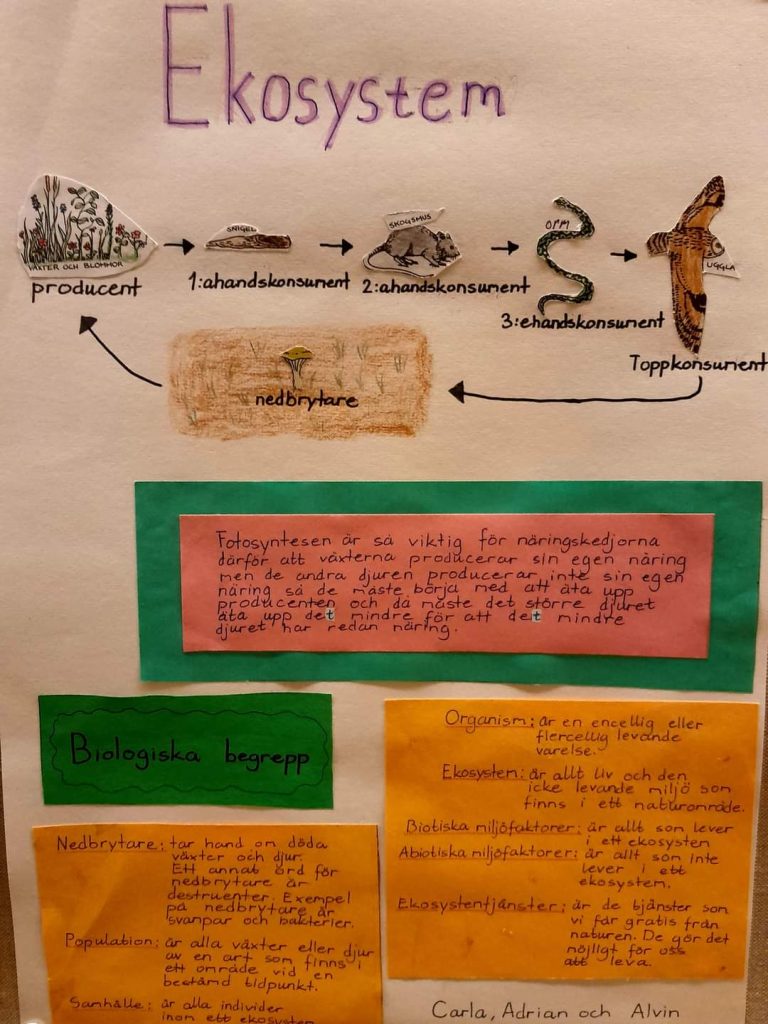 Ekosystem
VÄXTER OCH BLOMMOR
producent
SNIGEL
1:ahandskonsument
SKOGSMUS
2:ahandskonsument
ORM
3:ehandskonsument
UGGLA
Toppkonsument
nedbrytare
Fotosyntesen är så viktig för näringskedjorna
därför att växterna producerar sin egen näring
men de andra djuren producerar inte sin egen
näring så de måste börja med att äta upp
producenten och då måste det större djuret
äta upp det mindre för att det mindre
djuret har redan näring.
Biologiska begrepp
Nedbrytare: tar hand om döda
växter och djur.
Ett annat ord för
nedbrytare är
destruenter. Exempel
på nedbrytare är
svampar och bakterier.
Population: är alla växter eller djur
av en art som finns i
ett område vid en
bestämd tidpunkt.
Samhälle: är alla individer
inom ett ekosystem
Organism: är en encellig eller
flercellig levande
varelse.
Ekosystem: är allt liv och den
icke levande miljö som
finns i ett naturområde.
Biotiska miljöfaktorer: är allt som lever
i ett ekosystem
Abiotiska miljöfaktorer: är allt som inte
lever i ett
ekosystem.
Ekosystemtjänster: är de tjänster som
vi får gratis från
naturen. De gör det
möjligt för oss
att leva.
Carla, Adrian och Alvin